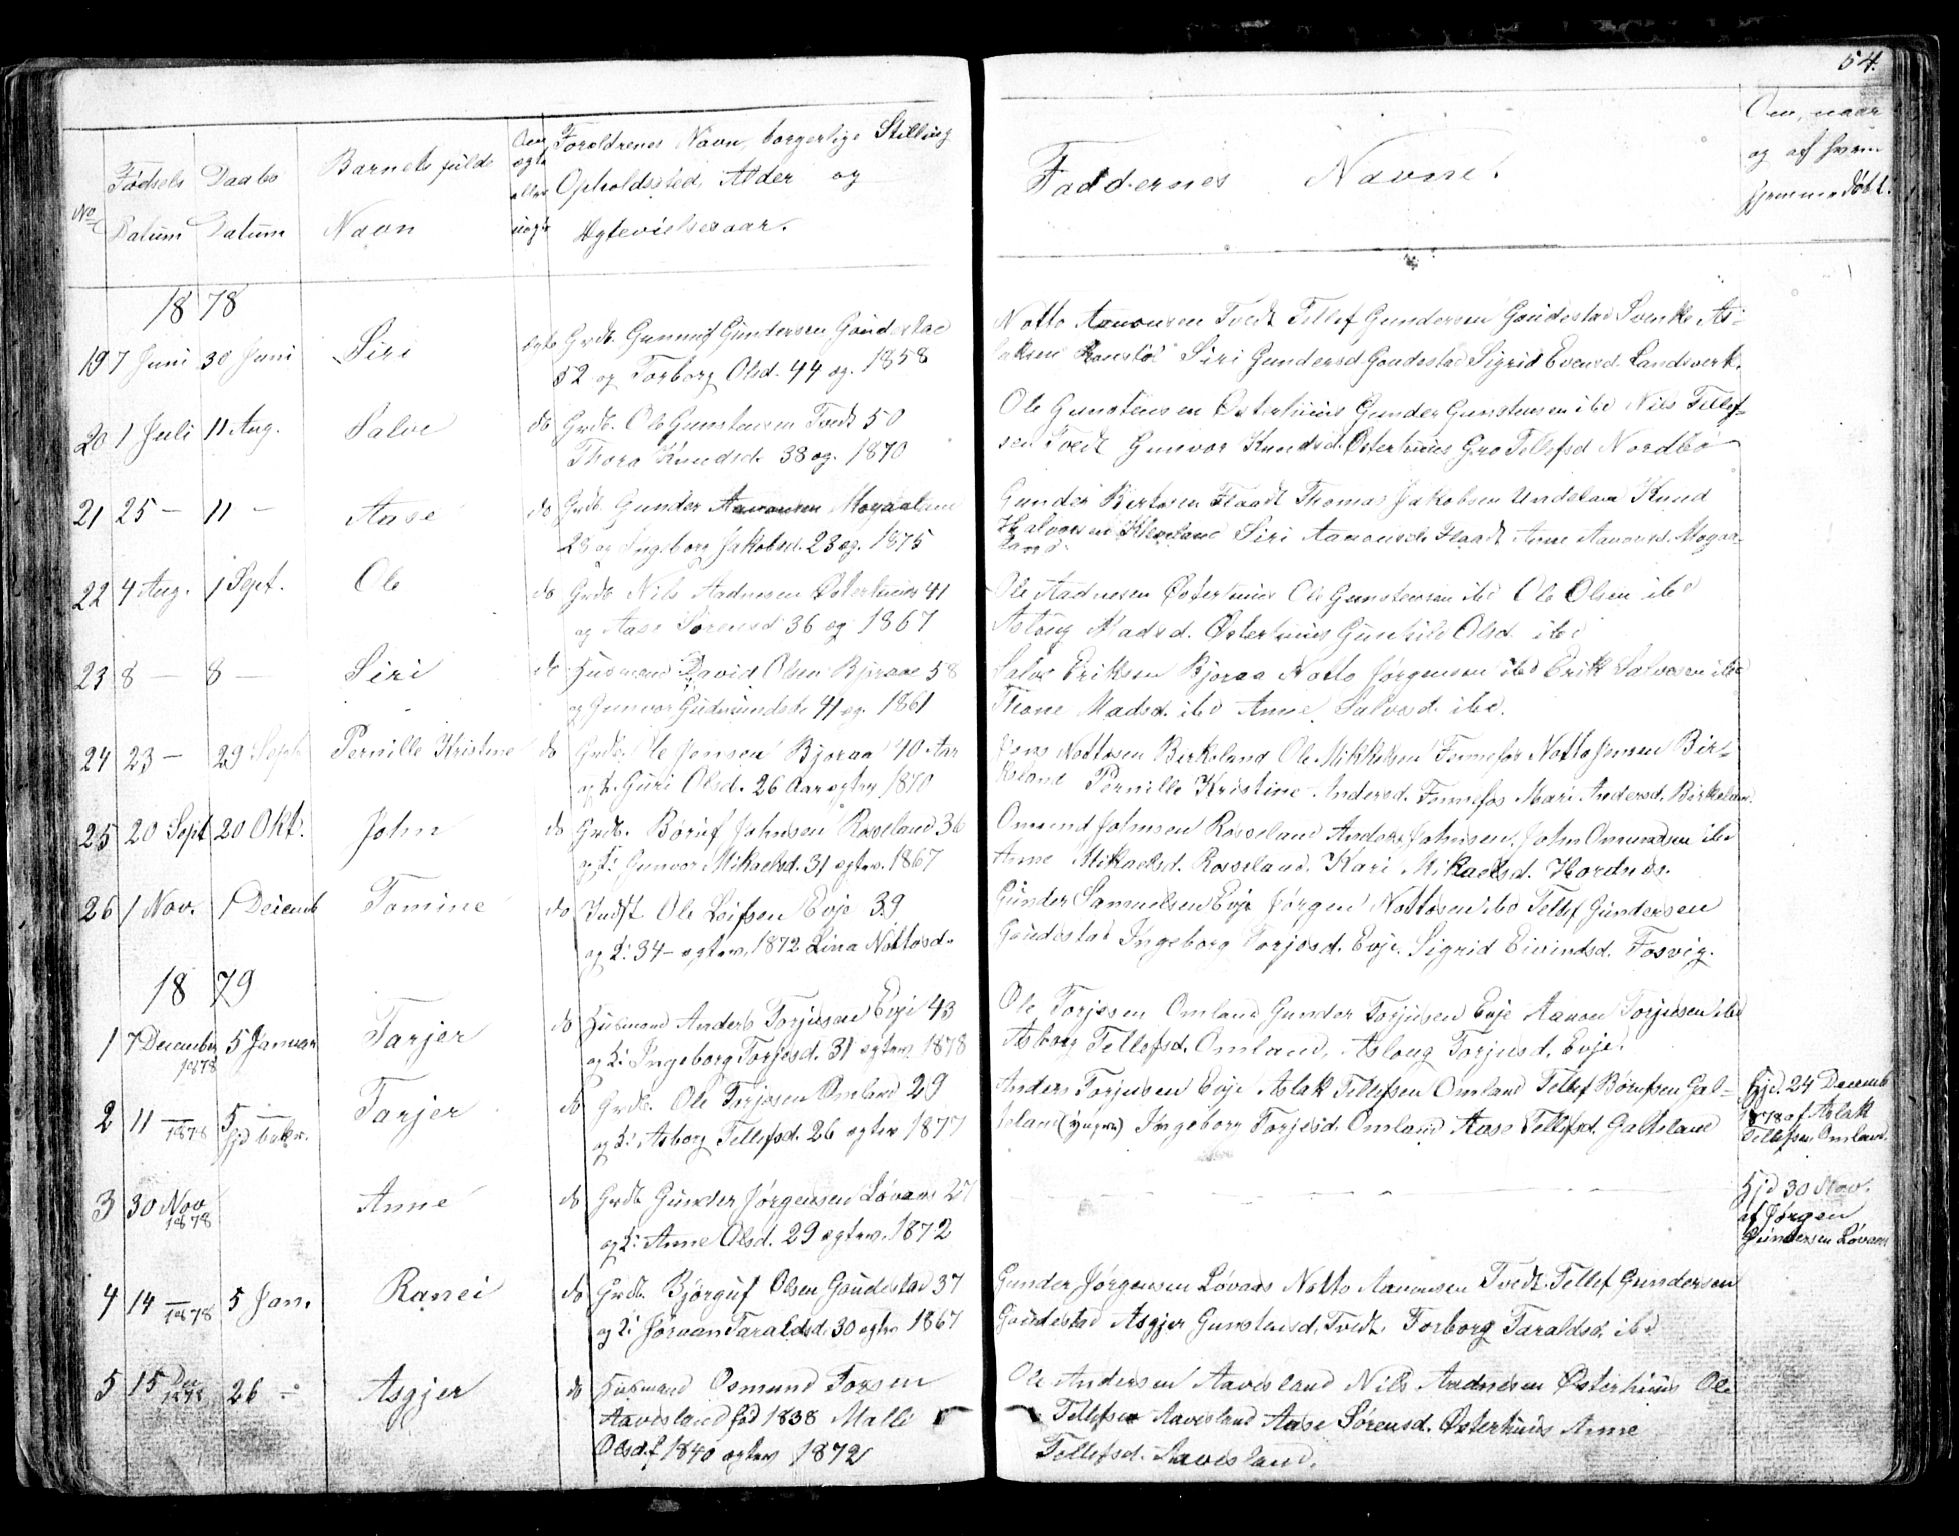 54.
No
Fødsels Datum
Daabs Datum
Barnets fulde Navn
Om ægte eller uægte
Forældrenes Navn, borgerlige Stilling
Opholdssted, Alder og
Ægtevielsesaar.
Faddernes Navne.
Om, naar
og af hvem
hjemmedöbt.
1878
19 7 Juni 30 Juni Siri ægte Grdb. Gunnuf Gundersen Goudestad
52 og Torborg Olsd. 44 æg. 1858
Notto Aanonsen Tvedt Tellef Gundersen Goudestad Svenke As-
laksen Siri Gundersd Goudestad Sigrid Evensd. Landsverk.
20 1 Juli 11 Aug. Salve do Grdb. Ole Gunstensen Tvedt 50
Thora Knudsd. 38 æg. 1870
Ole Gunstensen Østerhuus Gunder Gunstensen ibd Nils Tellef-
sen Tvedt Gunvor Knudsd. Østerhuus Gro Tellefsd Nordbö
21 25 – 11 – Aase do Grdb. Gunder Aanonsen Mogaaland
28 og Ingeborg Jakobsd. 23 æg. 1875
Gunder Bertosen Flaadt Thomas Jakobsen Undeland Knud
Halvorsen Kleveland Siri Aanonsd. Flaadt Anne Aanonsd. Mogaa-
land.
22 4 Aug. 1 Sept. Ole do Grdb Nils Aadnesen Østerhuus 41
og Aase Sørensd 36 æg 1867
Ole Aadnesen Østerhuus Ole Gunstensen ibd Ole Olsen ibd
Asloug Madsd. Østerhuus Gunhild Olsd. ibd
23 8 – 8 – Siri do Husmand David Olsen Bjoraae 58
og Gunvor Gudmundsd. 41 æg. 1861
Salve Eriksen Bjoraa Notto Jørgensen ibd Erik Salvesen ibd
Thone Madsd. ibd Anne Salvesd. ibd.
24 23 – 29 Sept. Pernille Kristine do Grdb. Ole Jensen Bjoraa 40 Aar
og h. Guri Olsd. 26 Aar ægtev 1870
Jens Nottosen Birkeland Ole Mikkelsen Fennefos Notto Jensen Bir-
keland Pernille Kristine Andersd. Fennefos Mari Andersd. Birkeland.
25 20 Sept 20 Okt. John do Grdb. Børuf Johnsen Rosseland 36
og h: Gunvor Mikaelsd. 31 ægtev. 1867
Omund Johnsen Rosseland Anders Johnsen. John Omundsen ibd
Anne Mikaelsd. Rosseland. Kari Mikaelsd. Hordnes.
26 1 Nov. 1 Decemb Tomine do Indst. Ole Leifsen Evje 39
og h: 34 – ægtev. 1872 Lina Nottosd.
Gunder Samuelsen Evje Jörgen Nottosen ibd Tellef Gundersen
Goudestad Ingeborg Torjesd. Evje. Sigrid Eivindsd. Fosvig.
1879
1 7 December 1878 5 Januar Tarjer do Husmand Anders Torjusen Evje 43
og h: Ingeborg Torjesd. 31 ægtev 1878
Ole Torjesen Omland Gunder Torjusen Evje Aanon Torjusen ibd
Asborg Tellefsd. Omland, Asloug Torjusd. Evje.
2 11 – 1878 5 – hjd bekr. Tarjer do Grdb. Ole Torjesen Omland 29
og h: Asborg Tellefsd. 26 ægtev 1877
Anders Torjusen Evje Aslak Tellefsen Omland Tellef Børufsen Gal-
teland (yngre) Ingeborg Torjesd. Omland Aase Tellefsd. Galteland
Hjd. 24 Decemb
1878 af Aslak
Tellefsen Omland.
3 30 Nov 1878 Anne do Grdb Gunder Jørgensen Løvaas 27
og h: Anne Olsd. 29 ægtev. 1872
Hjd 30 Nov.
af Jørgen
Gundersen Løvaas
4 14 – 1878 5 Jan. Ranei do Grdb. Bjørguf Olsen Goudestad 37
og h: Joraan Taraldsd. 30 ægtev 1867
Gunder Jørgensen Løvaas Notto Aanonsen Tvedt Tellef Gundersen
Goudestad Asgjer Gunstensd. Tvedt. Torborg Taraldsd. ibd
5 15 Dec 1878 26 – Asgjer do Husmand Osmund Torsen
Aavesland fød 1838 Malli
Olsd. f 1840 ægtev 1872
Ole Andersen Aavesland Nils Aadnesen Østerhuus Ole
Tellefsen Aavesland Aase Sørensd. Østerhuus Anne
Tellefsd. Aavesland.